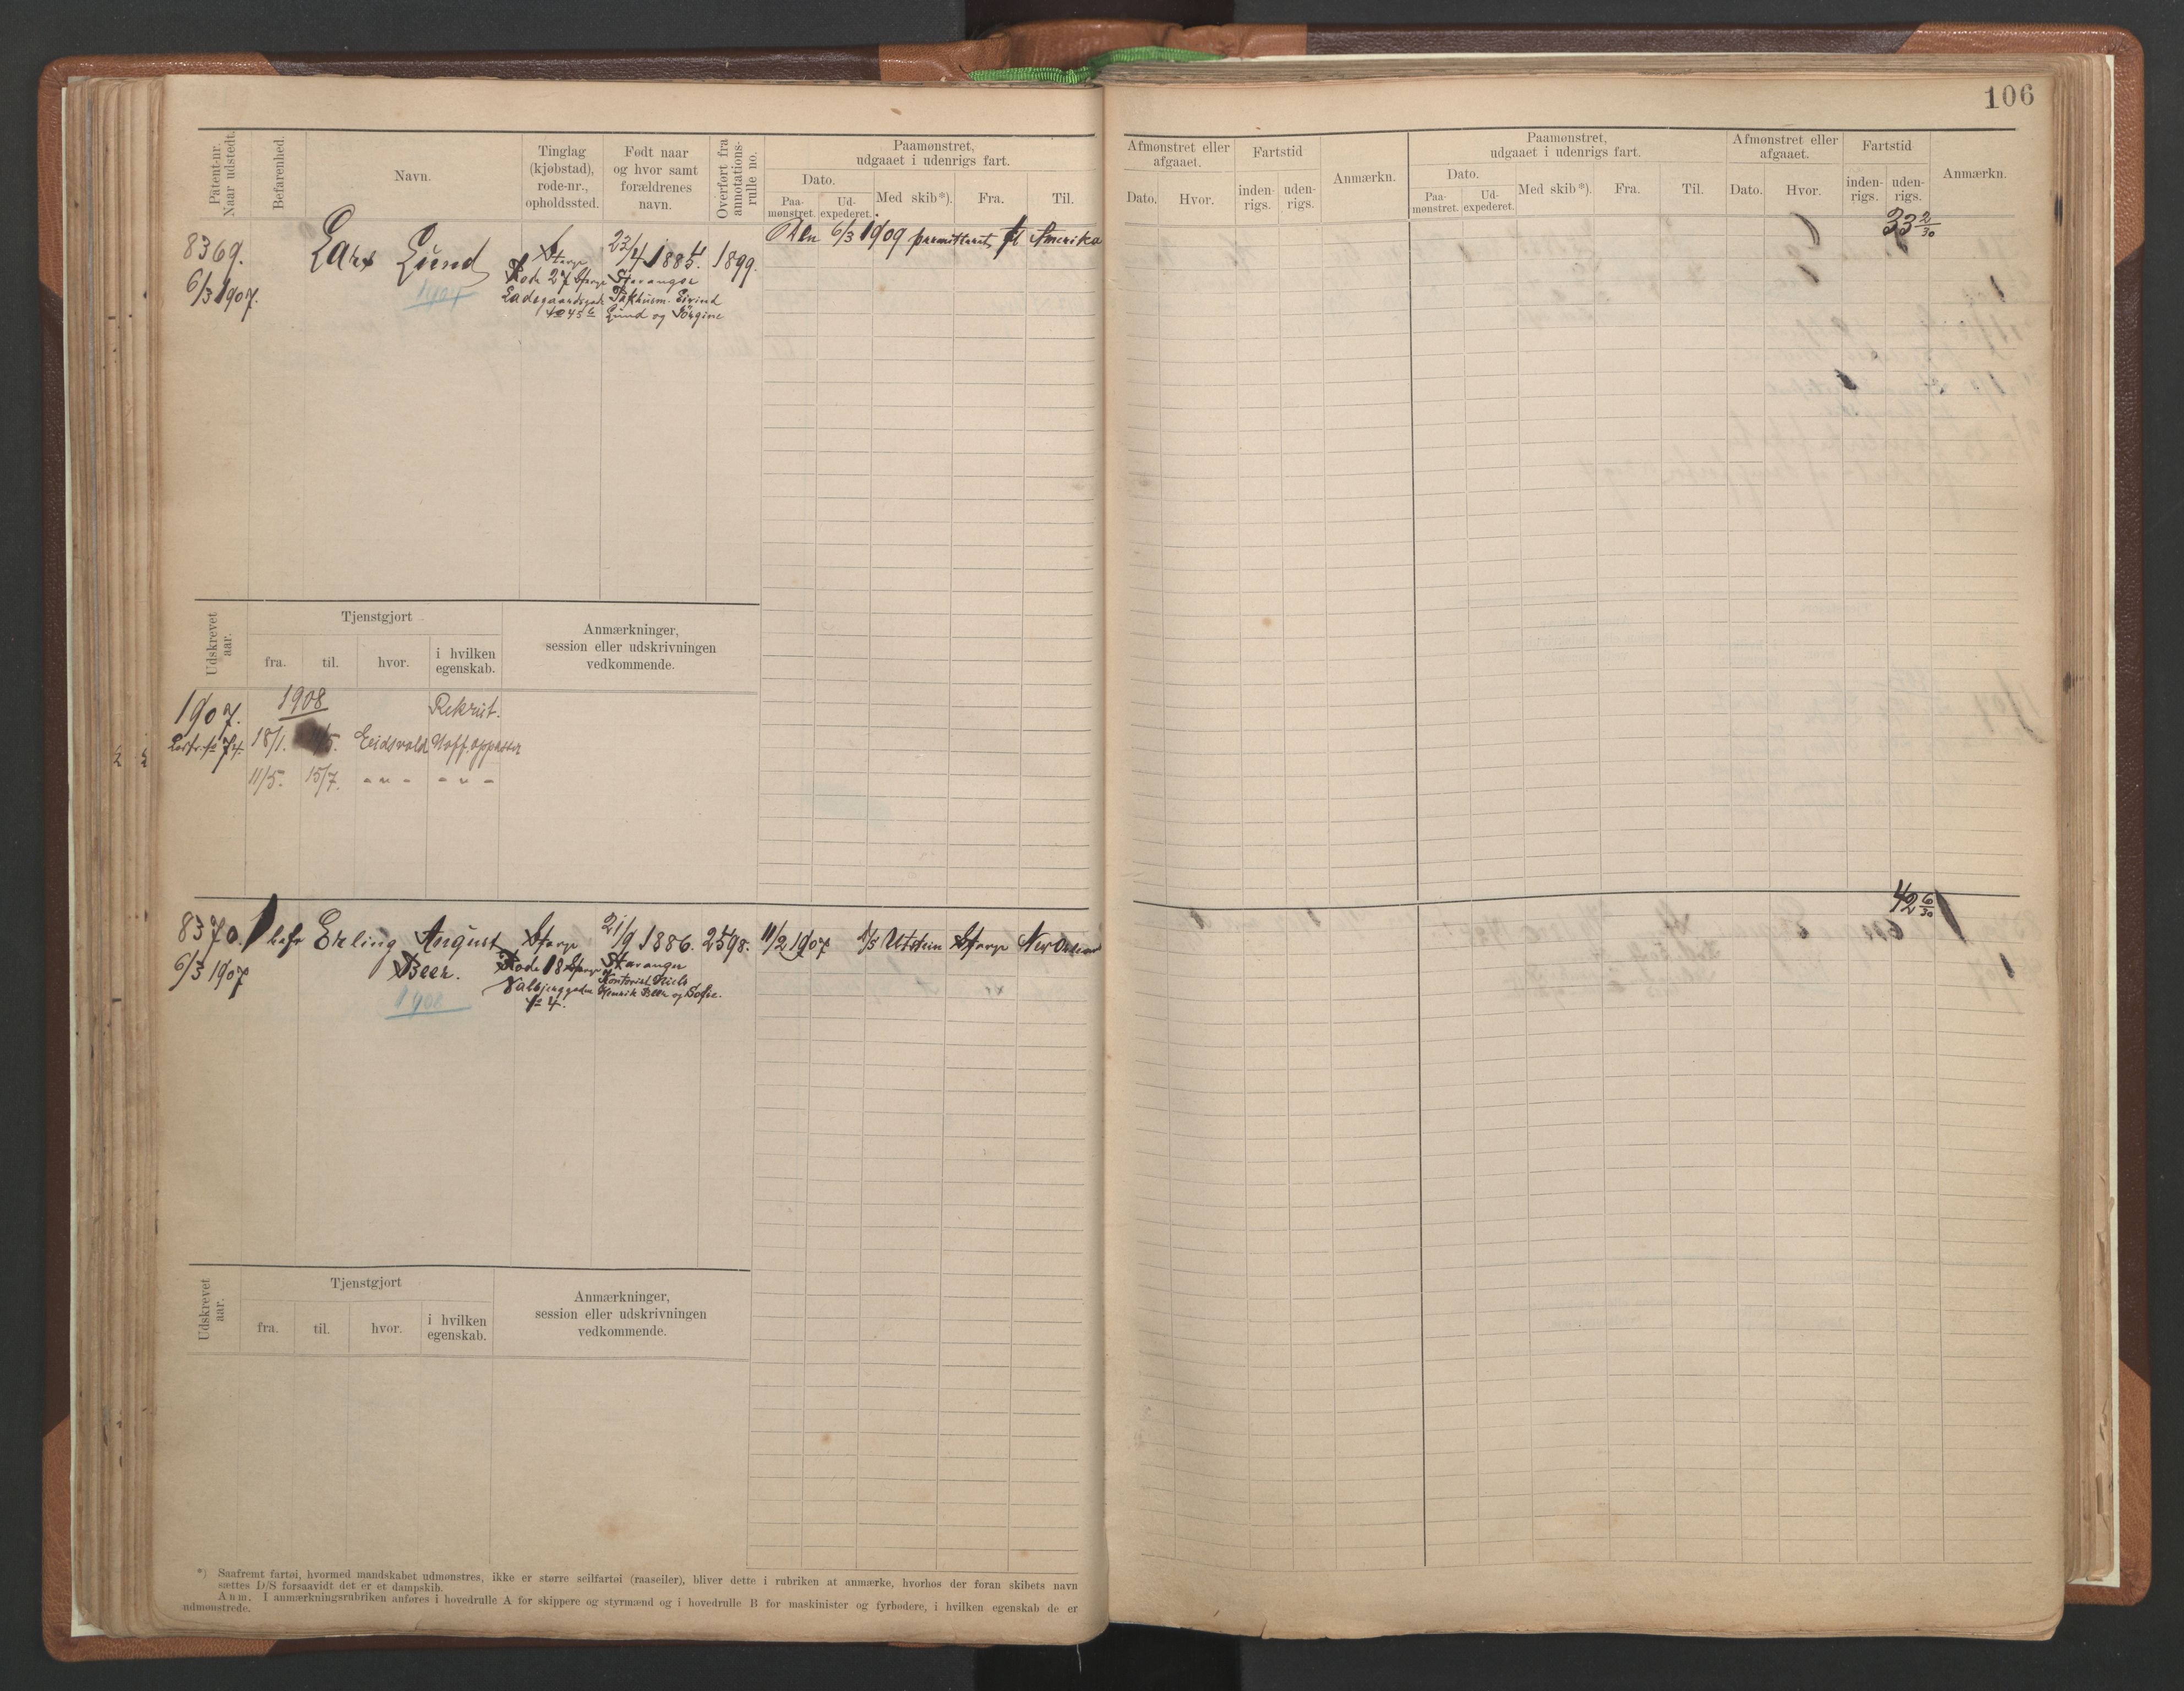 106
Patent-nr. Naar udstedt.
Befarenhed.
Navn.
Tinglag (kjøbstad), rode-nr., opholdssted.
Født naar og hvor samt forældrenes navn.
Overført fra annotations-rulle no.
Paamønstret, udgaaet i udenrigs fart.
Dato.
Paa-mønstret.
Ud-expederet.
Med skib*).
Fra.
Til.
Afmønstret eller afgaaet.
Dato.
Hvor.
Fartstid
inden-rigs.
uden-rigs.
Anmærkn.
Paamønstret, udgaaet i udenrigs fart.
Dato.
Paa-mønstret.
Ud-expederet.
Med skib*).
Fra.
Til.
Afmønstret eller afgaaet.
Dato.
Hvor.
Fartstid
inden-rigs.
uden-rigs.
Anmærkn.
33 2/30
8369.
6/3 1907.
Lars Lund
1907
Stavgr
Rode 27 Stavgr
Ladegaardsgade
No 45 b
22/4 1885.
Stavanger
Eivind
Lund og Jørgine
1899.
Den 6/3 1909 permitteret til Amerika
Udskrevet aar.
Tjenstgjort
fra.
til.
hvor.
i hvilken egenskab.
Anmærkninger, session eller udskrivningen vedkommende.
1907.
1908
Rekrut.
18/1.
Eidsvold
Uoff. oppasser
11/5.
15/7.
- " -
- " -
42 6/30
8370.
6/3 1907
1
befr
Erling August
Beer.
1908
Stavgr
Rode 18 Stavgr
Valbjerggaden
No 4.
21/9 1886.
Stavanger
Kontorist Niels
Henrik Beer og Sofie.
2598.
11/2 1907
1/3
Utstein
Stavgr
New Orleans
Udskrevet aar.
Tjenstgjort
fra.
til.
hvor.
i hvilken egenskab.
Anmærkninger, session eller udskrivningen vedkommende.
*) Saafremt fartøi, hvormed mandskabet udmønstres, ikke er større seilfartøi (raaseiler), bliver dette i rubriken at anmærke, hvorhos der foran skibets navn
sættes D/S forsaavidt det er et dampskib.
Anm. I anmærkningsrubriken anføres i hovedrulle A for skippere og styrmænd og i hovedrulle B for maskinister og fyrbødere, i hvilken egenskab de er
udmønstrede.